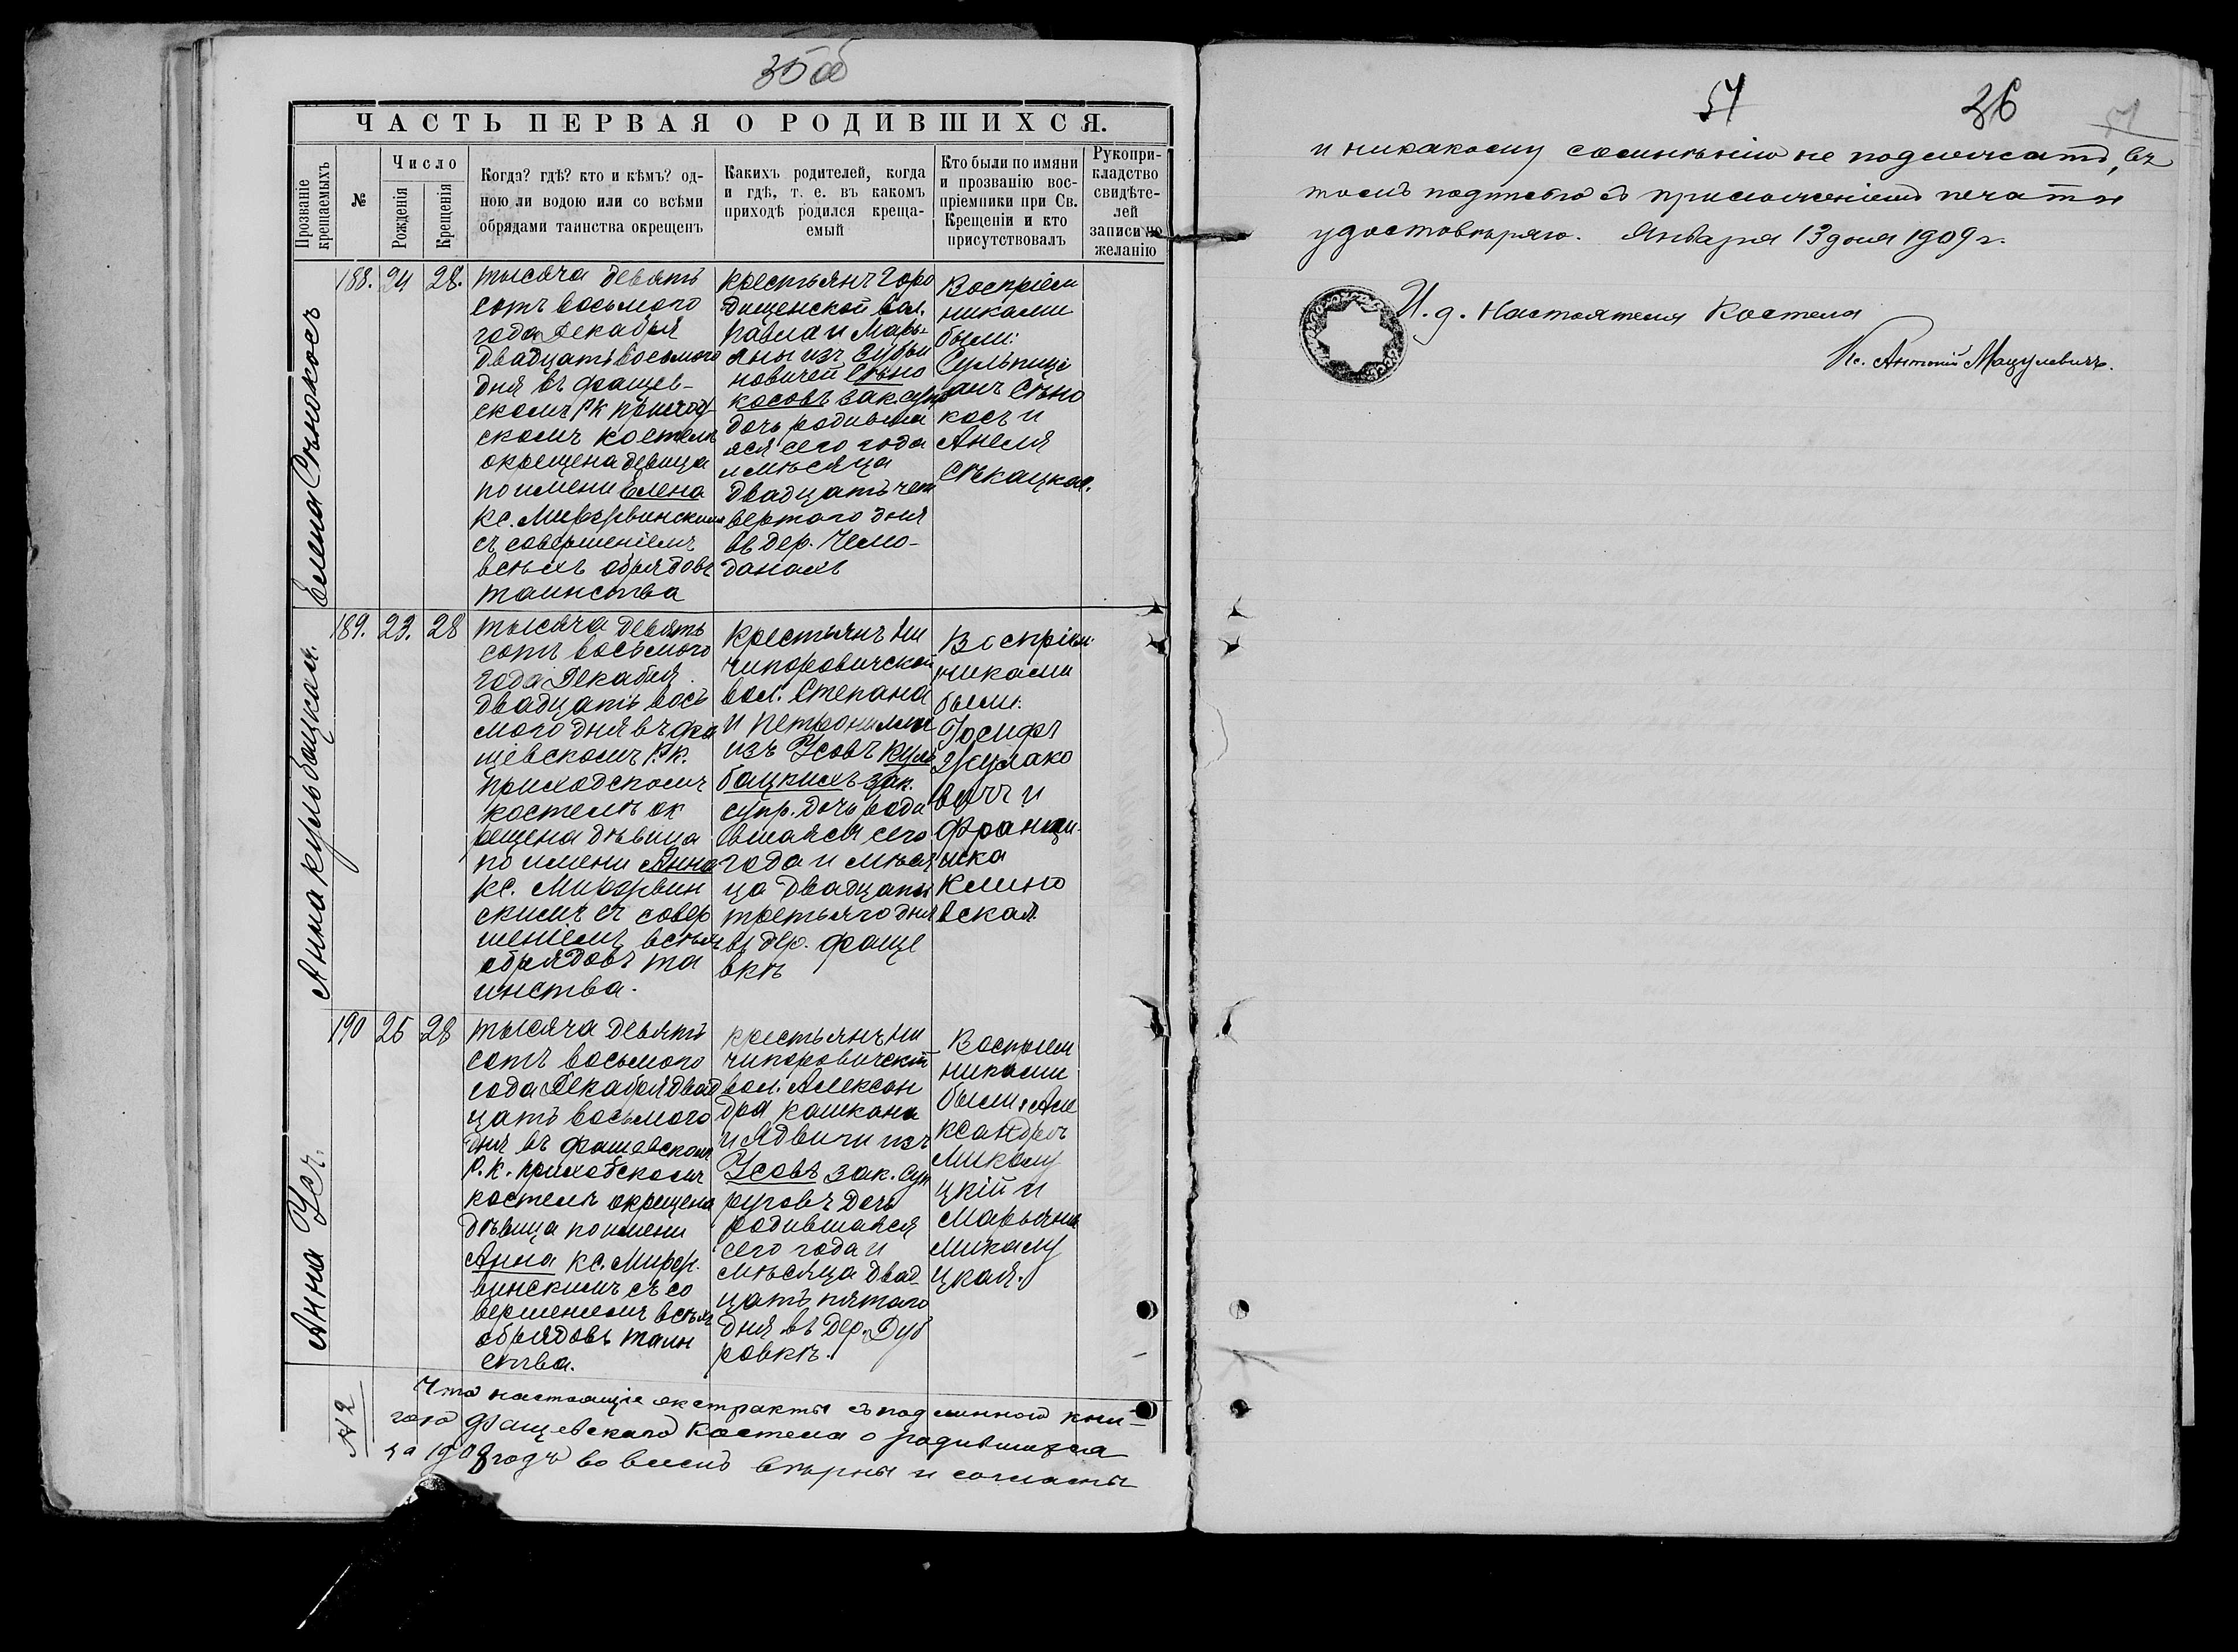 35 об
ЧАСТЬ ПЕРВАЯ О РОДИВШИХСЯ.
Прозваніе крещаемыхъ
№
Число
Рожденія
Крещенія
Когда? гдѣ? кто и кѣмъ? од-
ною ли водою или со всѣми
обрядами таинства окрещенъ
Какихъ родителей, когда
и гдѣ, т. е. въ какомъ
приходѣ родился креща-
емый
Кто были по имяни
и прозванію вос-
пріемники при Св.
Крещеніи и кто
присутствовалъ
Рукопри-
кладство
свидѣте-
лей
записи по
желанію
Елена Сѣнокосъ
188.
24
28.
тысяча девять
сотъ восьмого
года Декабря
двадцать восьмого
дня въ Фащев-
скомъ Рк приход
скомъ костелѣ
окрещена девица
по имени Елена
кс. Мирзвинскимъ
съ совершеніемъ
всѣхъ обрядовъ
таинства
крестьянъ Горо
дищенской вол.
Павла и Марь
яны изъ
новичей Сѣно
косовъ зак. суп
дочь родивша
яся сего года
и мѣсяца
двадцать чет
вертаго дня
въ дер. Чемо-
данахъ
Воспріем
никами
были:
Сульпици
анъ Сѣно
косъ и
Анеля
Сѣкацкая.
Анна Кульбацкая.
189.
23.
28
тысяча девять
сотъ восьмого
года Декабря
двадцать вось
мого дня въ Фа
щевскомъ Р.К.
приходскомъ
костелѣ ок
рещена дѣвица
по имени Анна
кс. Мирзвин
скимъ съ совер
шеніемъ всѣхъ
обрядовъ та
инства.
крестьянъ Ни
чипоровичской
вол. Степана
и Петронимми
изъ Усовъ Куль
бацкихъ зак.
супр. дочь роди
вшаяся сего
года и мѣся
ца двадцать
третьяго дня
въ дер. Фаще
вкѣ
Воспріем
никами
были:
Іосифъ
Жулако
вичъ и
Францы
шка
Клино
вская.
Анна Усъ.
190
25
28
тысяча девять
сотъ восьмого
года Декабря двад
цать восьмого
дня въ Фащевскомъ
Р.К. приходскомъ
костелѣ окрещена
дѣвица по имени
Анна кс. Мирз
винскимъ съ со
вершеніемъ всѣхъ
обрядовъ таин
ства.
крестьянъ Ни
чипоровичской
вол. Алексан
дра Кашкана
и Ядвиги изъ
Усовъ зак. суп
руговъ дочь
родившаяся
сего года и
мѣсяца двад-
цать пятаго
дня въ дер. Дуб
ровкѣ.
Воспріем
никами
были: Але
ксандръ
Микулу
цкій и
Марьяна
Микулу
цкая.
Что настоящіе экстракты съ подлинною кни-
гою Фащевскаго Костела о родившихся
за 1908 годъ во всемъ вѣрны и согласны
57
36
57
и никакому сомнѣнію не подлежатъ, въ
томъ подписью съ приложеніемъ печати
удостовѣряю. Января 13 дня 1909 г.
И. д. Настоятеля Костела
Кс. Антоній Мацулевичъ.